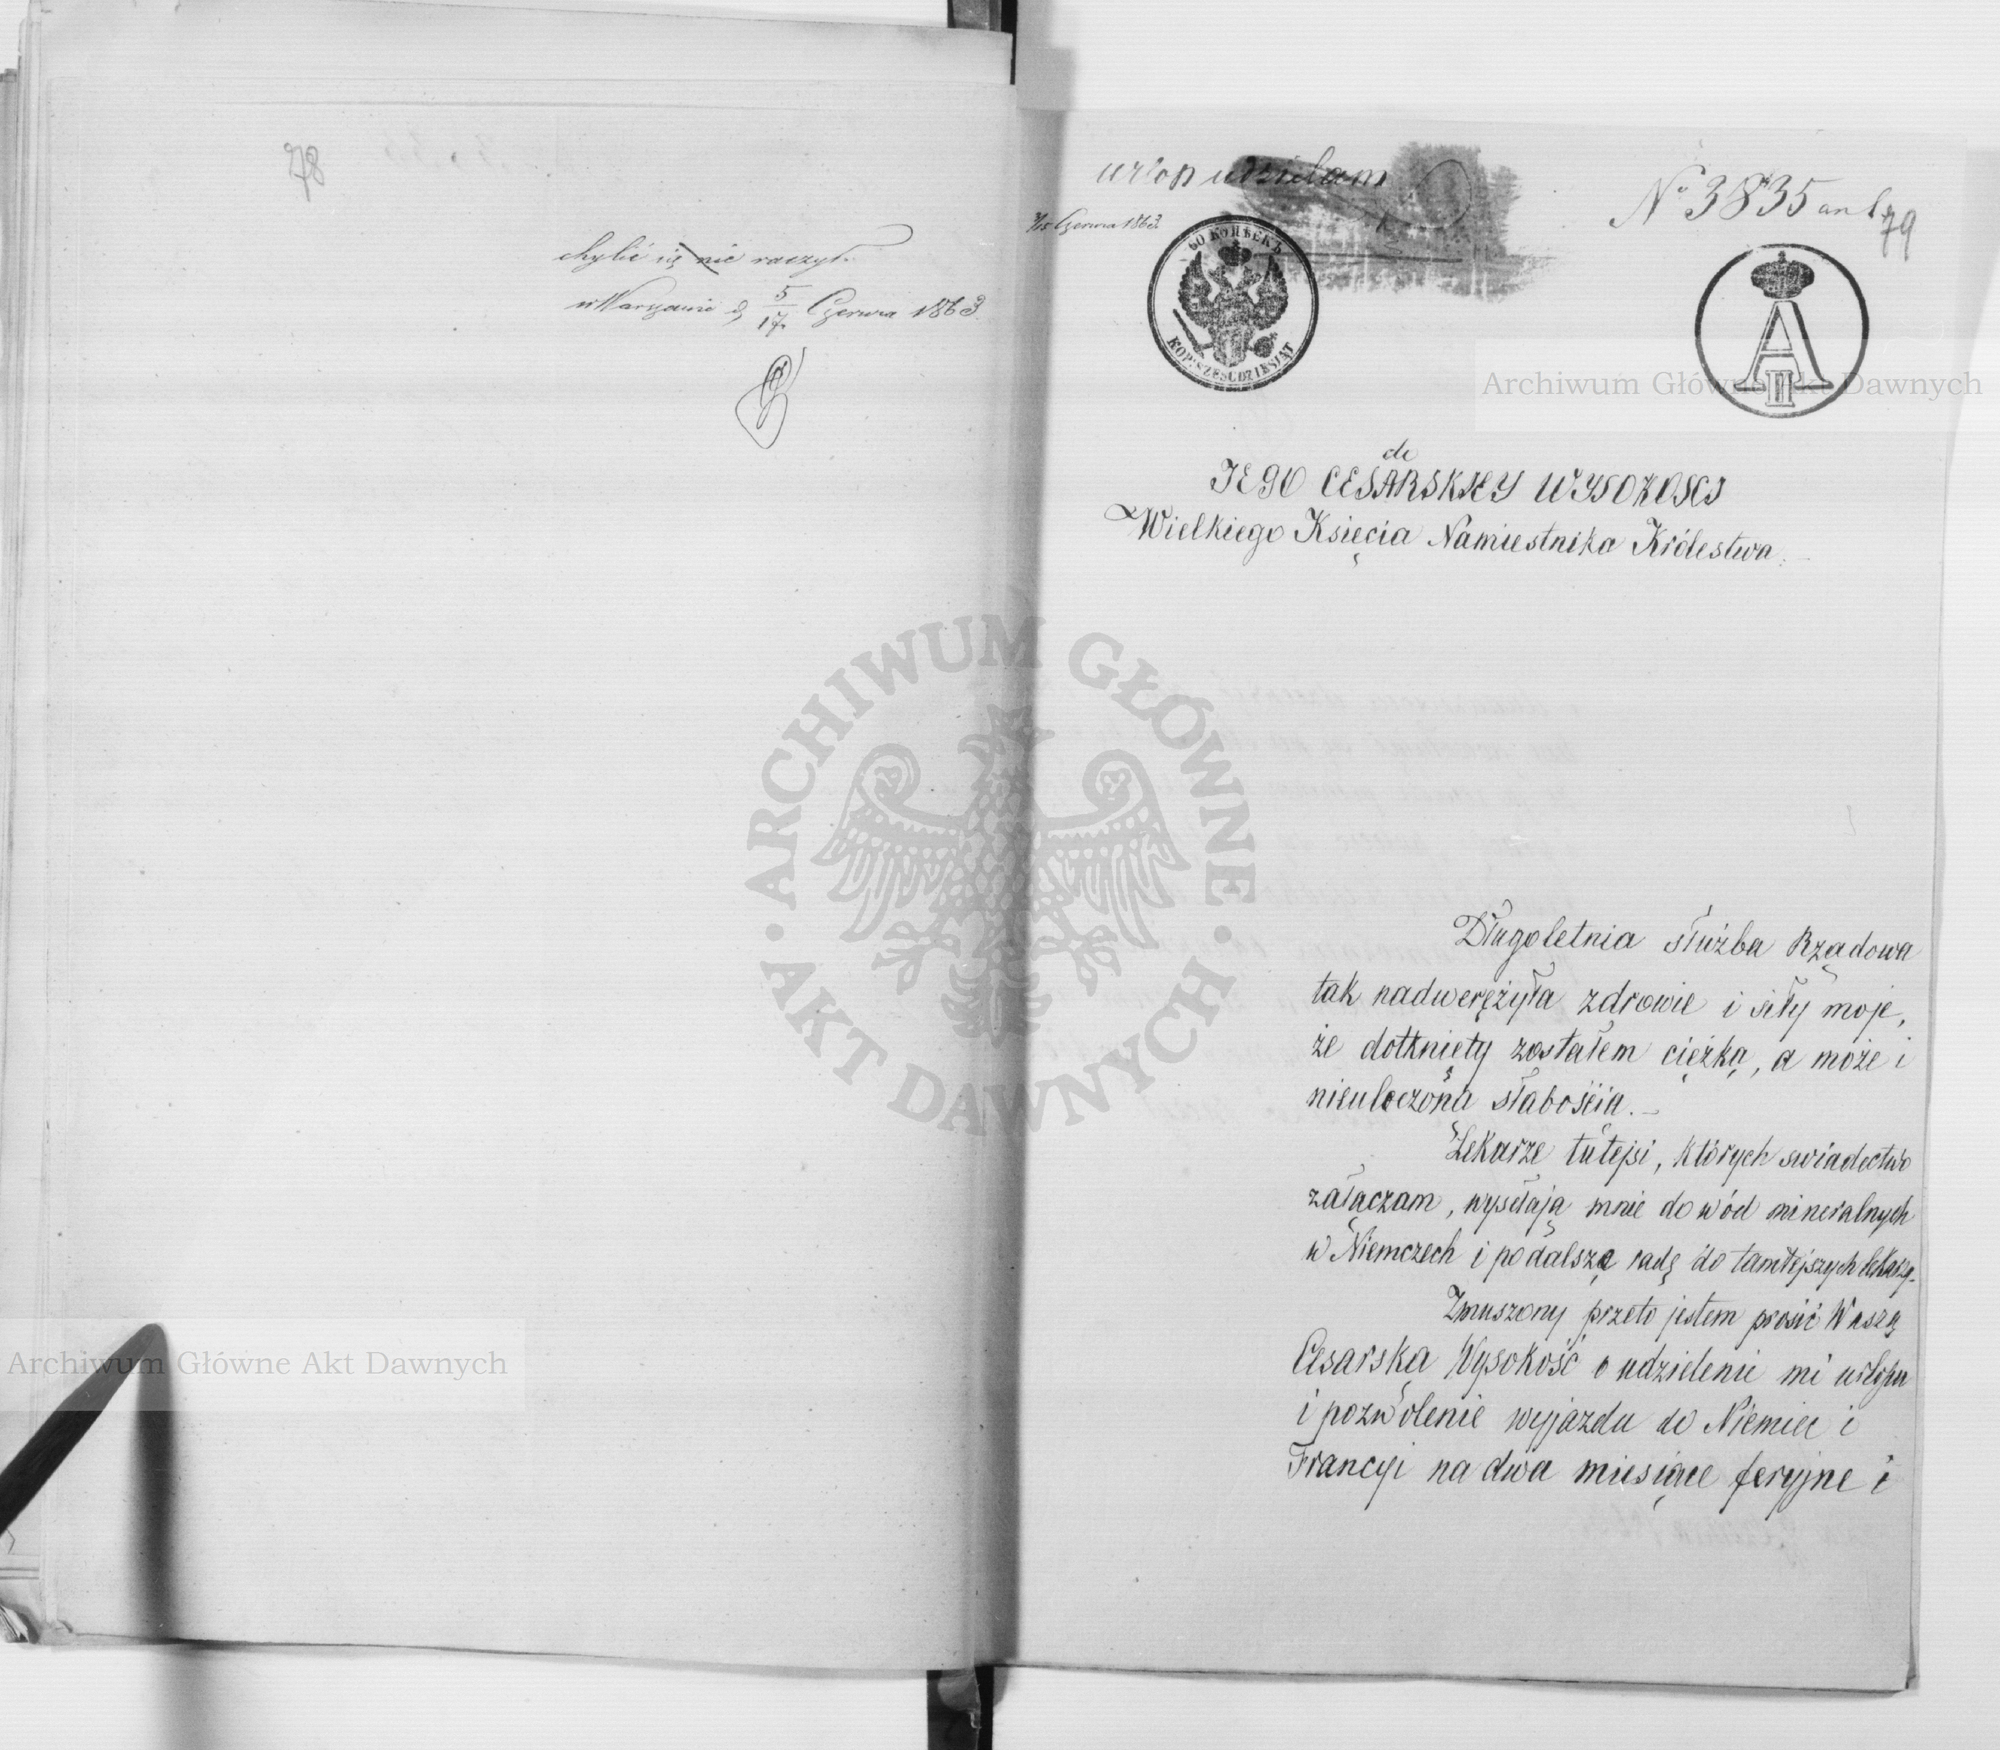 78
chylić się nie raczył.
w Warszawie d. 5/17 Czerwca 1863
urlop udzielam
3/15 Czerwca 1863
No 3835
79
60 КОПѢЕКЪ
KOP: SZEŚĆDZIESIĄT
A II
do
JEGO CESARSKIEY WYSOKOSCI
Wielkiego Księcia Namiestnika Królestwa.
Długoletnia służba Rządowa
tak nadwerężyła zdrowie i siły moje,
że dotknięty zostałem ciężką, a może i
nieuleczoną słabością.
Lekarze tutejsi, których swiadectwo
załączam, wysełają mnie do wód mineralnych
w Niemczech i po dalszą radę do tamtejszych lekarzy.
Zmuszony przeto jestem prosić Waszą
Cesarską Wysokość o udzielenie mi urlopu
i pozwolenie wyjazdu do Niemiec i
Francyi na dwa miesiące feryjne i
Archiwum Główne Akt Dawnych
Archiwum Główne Akt Dawnych
ARCHIWUM GŁÓWNE AKT DAWNYCH